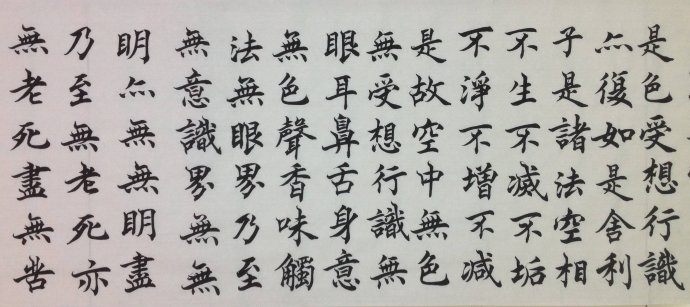 是色受想行識
亦復如是舍利
子是諸法空相
不生不滅不垢
不淨不增不減
是故空中無色
無受想行識無
眼耳鼻舌身意
無色聲香味觸
法無眼界乃至
無意識界無無
明亦無無明盡
乃至無老死亦
無老死盡無苦